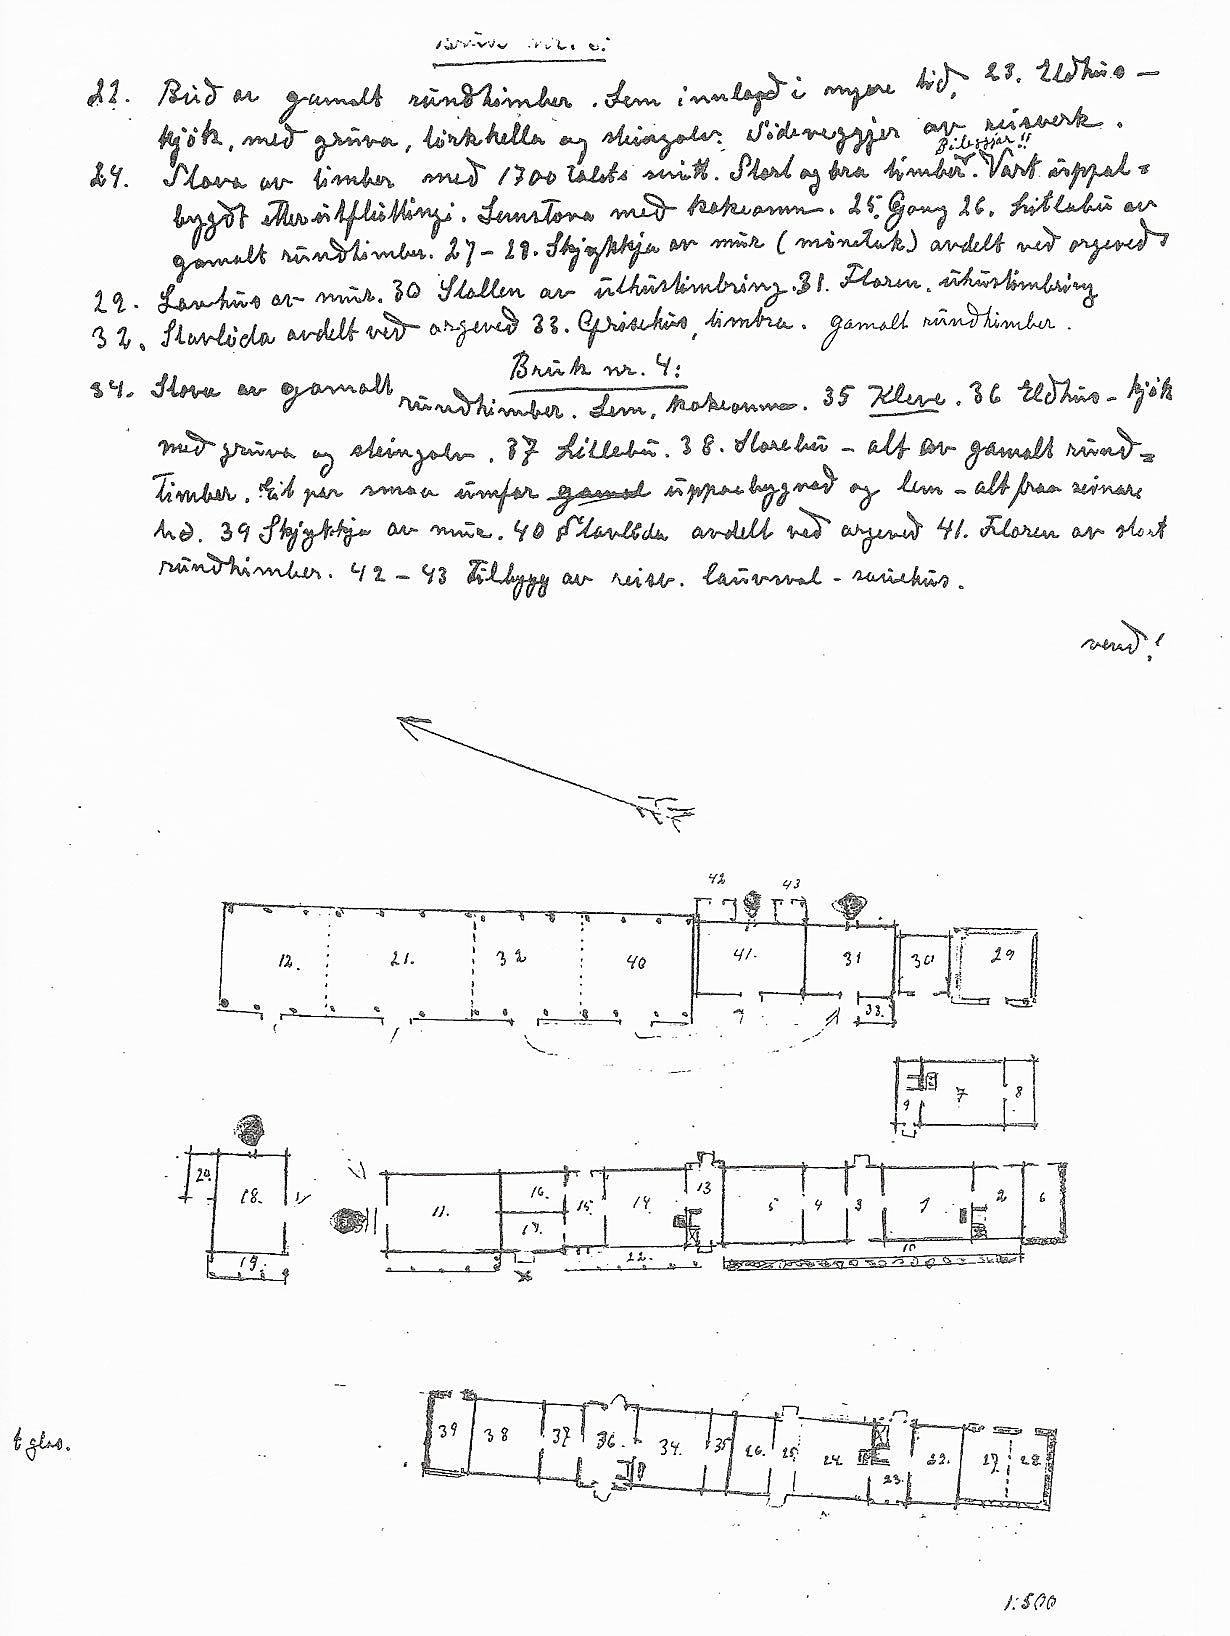 Bruk nr. 3:
22. Búð av gamalt rundtimber. Lem innlagð i nyare tið, 23. Eldhus-
kjøk, med gruva, tørkhella og steingolv. Sideveggjer av reisverk.
Bileggjar!!
24. Stova av timber með 1700 talets snitt. Stort og bra timber. Vart uppat=
bygðt etter utflutting. Lemstova með kakeomn. 25. Gang 26. Litlabu av
gamalt rundtimber. 27-28. Skjykkja av mur (mønetak) avdelt ved orgeveð
29. Lauhus av mur. 30 Stallen av uthustimbring. 31. Floren. uhustimbring
32. Stavlöda avdelt veð orgeveð 33. Grisehus, timbra. gamalt rundtimber.
Bruk nr. 4:
34. Stova av gamalt rundtimber. Lem, kakeomn. 35 Kleve. 36 Eldhus-kjøk
með gruva og steingolv. 37 Litlebu. 38. Storebu - alt av gamalt rund=
timber. Eit par smaa umfar gamal uppaabygnad og lem - alt fraa seinare
tið. 39 Skjykkja av mur. 40 Stavlöda avdelt veð orgeveð 41. Floren av stort
rundtimber. 42-43 Tilbygg av reisv. lauvsval - sauehus.
vend!
42 43
12. 21. 32 40 41. 31 30 29
33.
9 7 8
20 18. 11. 16. 15. 14. 13 5 4 3 1 2 6
17.
19. 22. 10
39 38 37 36. 34. 35 26. 25. 24. 23. 22. 27. 28.
t glas.
1:500